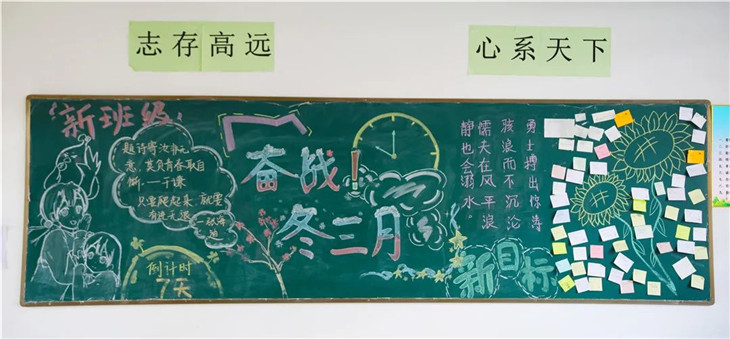 志存高远
心系天下
新班级
题诗寄汝非无
意,莫负青春取自
惭.一于谦
只要爬起来
倒计时
7天
奋战!
冬三月
勇士搏出惊涛
骇浪而不沉沦
懦夫在风平浪
静也会溺水
新目标